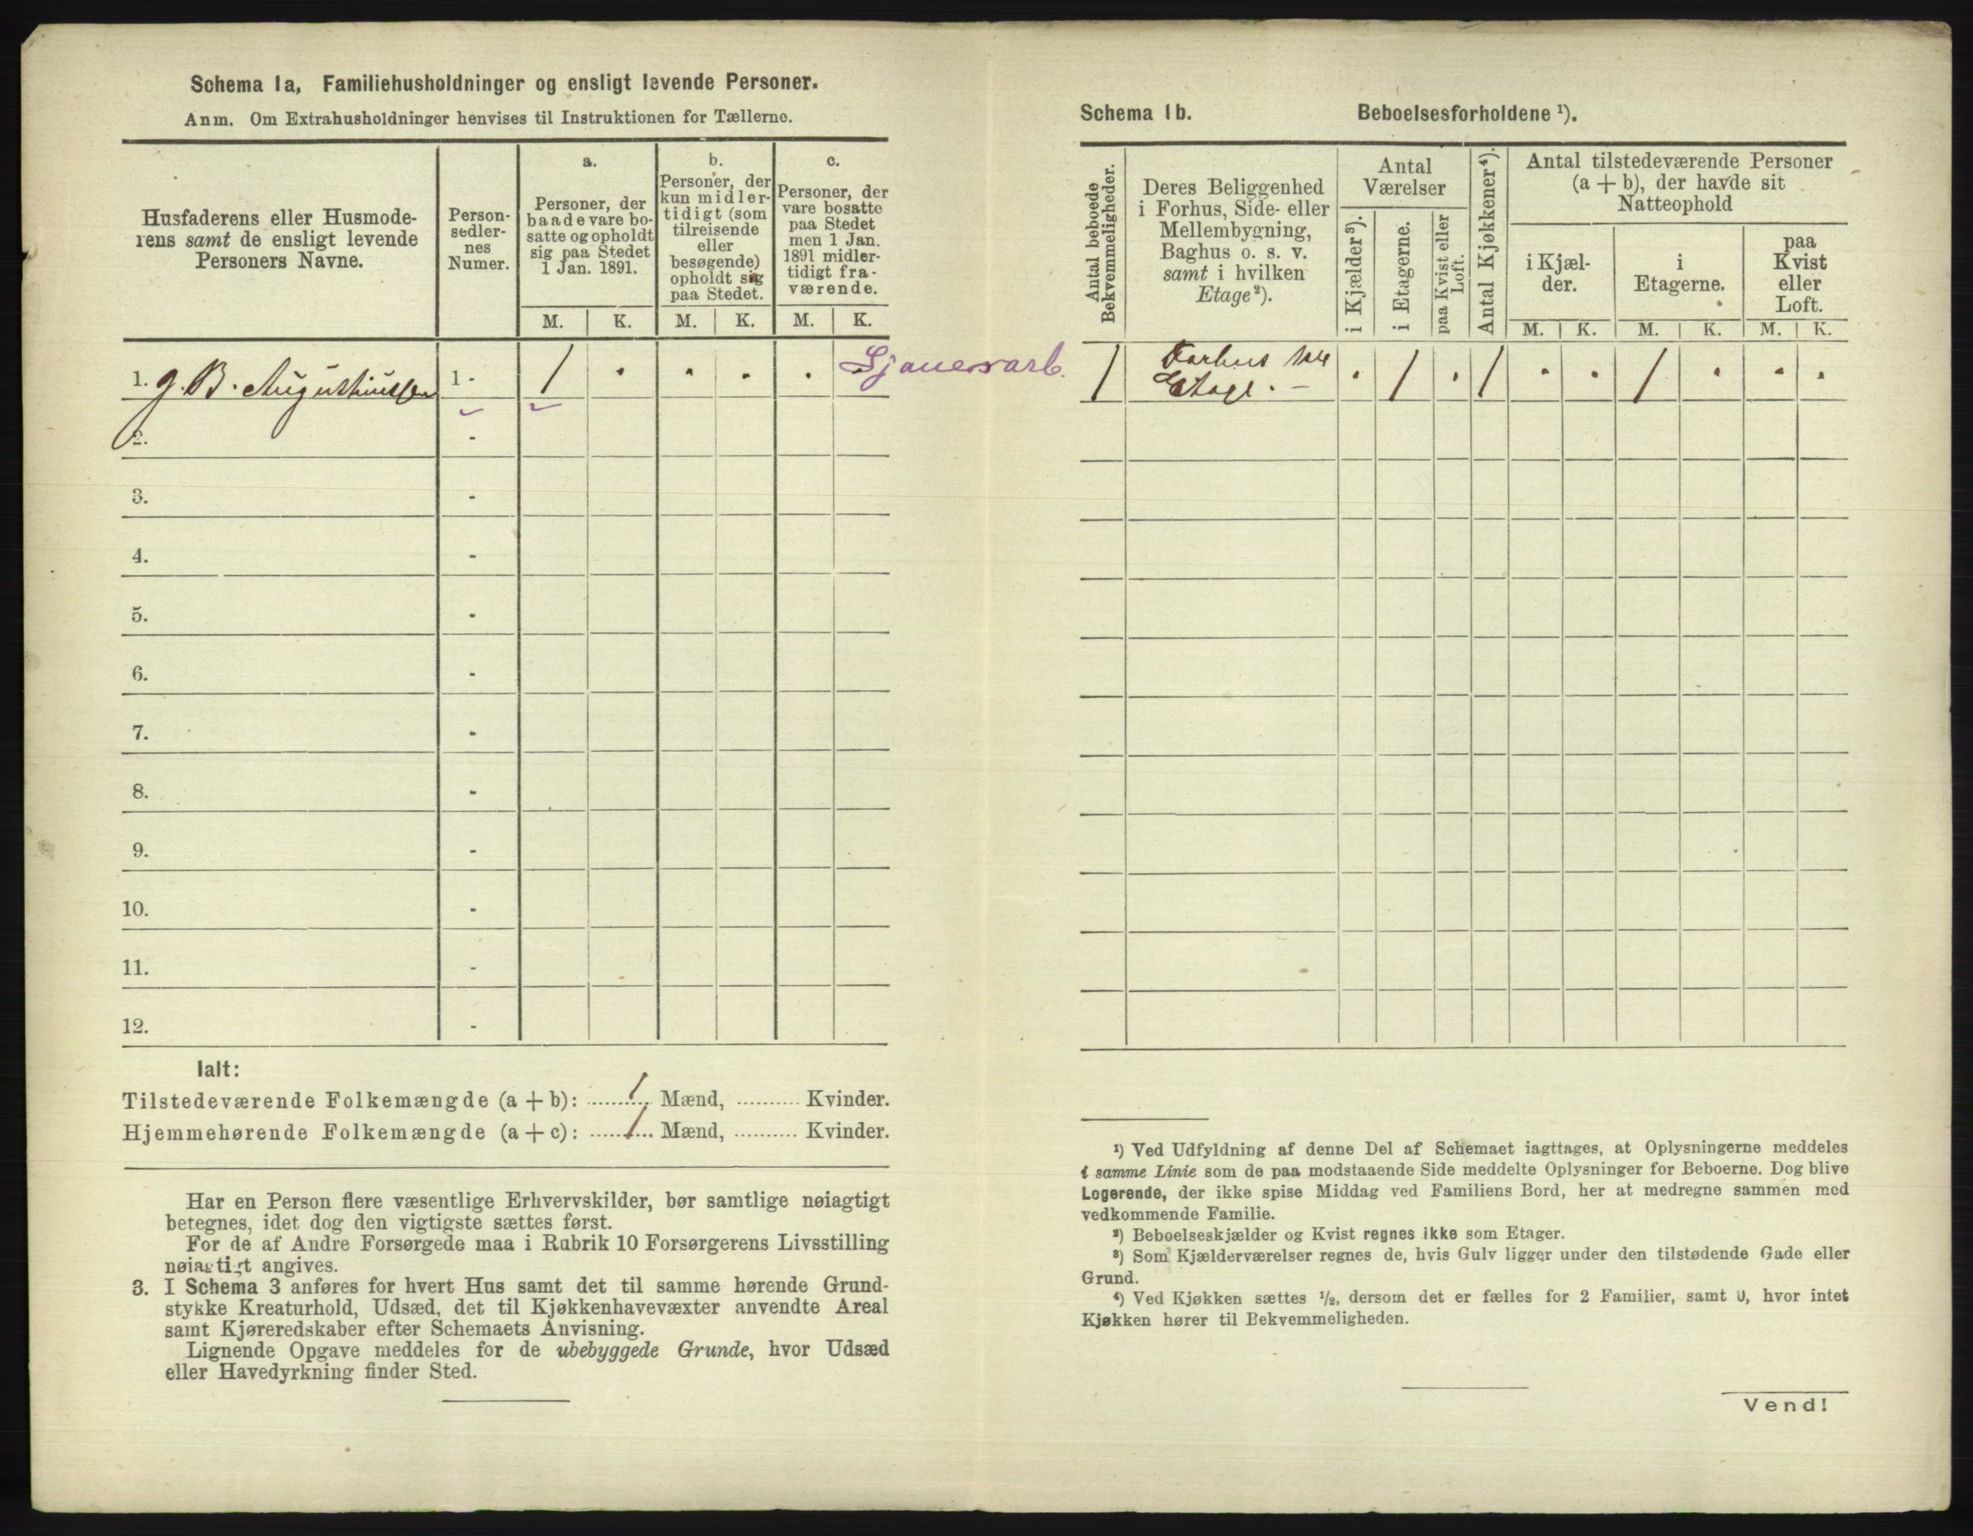 Schema 1a, Familiehusholdninger og ensligt levende Personer.
Anm. Om Extrahusholdninger henvises til Instruktionen for Tællerne.
Husfaderens eller Husmode-
rens samt de ensligt levende
Personers Navne.
Person-
sedler-
nes
Numer.
a.
Personer, der
baade vare bo-
satte og opholdt
sig paa Stedet
1 Jan. 1891.
b.
Personer, der
kun midler-
tidigt (som
tilreisende
eller
besøgende)
opholdt sig
paa Stedet.
c.
Personer, der
vare bosatte
paa Stedet
men 1 Jan.
1891 midler-
tidigt fra-
værende.
M. K. M. K. M. K.
1. G. B. Augustinussen 1 - 1 . . . .
2. -
3. -
4. -
5. -
6. -
7. -
8. -
9. -
10. -
11. -
12. -
Ialt:
Tilstedeværende Folkemængde (a + b): 1 Mænd, .......... Kvinder.
Hjemmehørende Folkemængde (a + c): 1 Mænd, .......... Kvinder.
Har en Person flere væsentlige Erhvervskilder, bør samtlige nøiagtigt
betegnes, idet dog den vigtigste sættes først.
For de af Andre Forsørgede maa i Rubrik 10 Forsørgerens Livsstilling
nøiagtigt angives.
3. I Schema 3 anføres for hvert Hus samt det til samme hørende Grund-
stykke Kreaturhold, Udsæd, det til Kjøkkenhavevæxter anvendte Areal
samt Kjøreredskaber efter Schemaets Anvisning.
Lignende Opgave meddeles for de ubebyggede Grunde, hvor Udsæd
eller Havedyrkning finder Sted.
Schema 1b. Beboelsesforholdene ¹).
Antal beboede
Bekvemmeligheder.
Deres Beliggenhed
i Forhus, Side- eller
Mellembygning,
Baghus o. s. v.
samt i hvilken
Etage²).
Antal
Værelser
i Kjælder³).
i Etagerne.
paa Kvist eller
Loft.
Antal Kjøkkener⁴).
Antal tilstedeværende Personer
(a + b), der havde sit
Natteophold
i Kjæl-
der.
i
Etagerne.
paa
Kvist
eller
Loft.
M. K. M. K. M. K.
1 Forhus
Etage . – . 1 . 1 . . 1 . . .
¹) Ved Udfyldning af denne Del af Schemaet iagttages, at Oplysningerne meddeles
i samme Linie som de paa modstaaende Side meddelte Oplysninger for Beboerne. Dog blive
Logerende, der ikke spise Middag ved Familiens Bord, her at medregne sammen med
vedkommende Familie.
²) Beboelseskjælder og Kvist regnes ikke som Etager.
³) Som Kjælderværelser regnes de, hvis Gulv ligger under den tilstødende Gade eller
Grund.
⁴) Ved Kjøkken sættes ½, dersom det er fælles for 2 Familier, samt 0, hvor intet
Kjøkken hører til Bekvemmeligheden.
Vend!